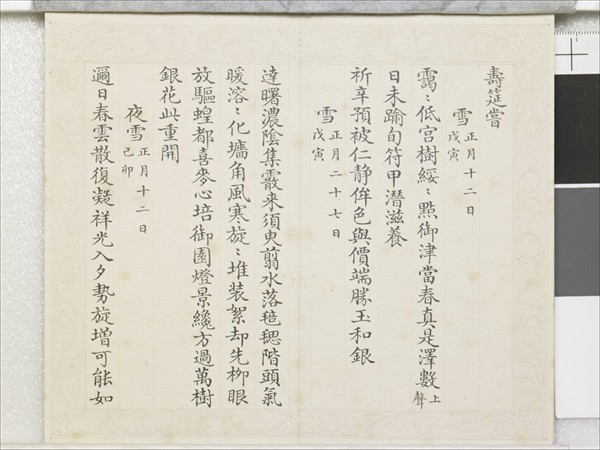 壽筵嘗
雪 正月十二日 戊寅
靄〻低宮樹綏〻點御津當春真是澤數 上聲
日未踰旬符甲潛滋養
祈辛預被仁静侔色與價端勝玉和銀
雪 正月二十七日 戊寅
達曙濃陰集霰来須臾翦水落毰毸階頭氣
暖溶〻化墻角風寒旋〻堆装絮却先栁眼
放驅蝗都喜麥心培御園燈景纔方過萬樹
銀花此重開
夜雪 正月十二日 己卯
邇日春雲散復凝祥光入夕勢旋增可能如